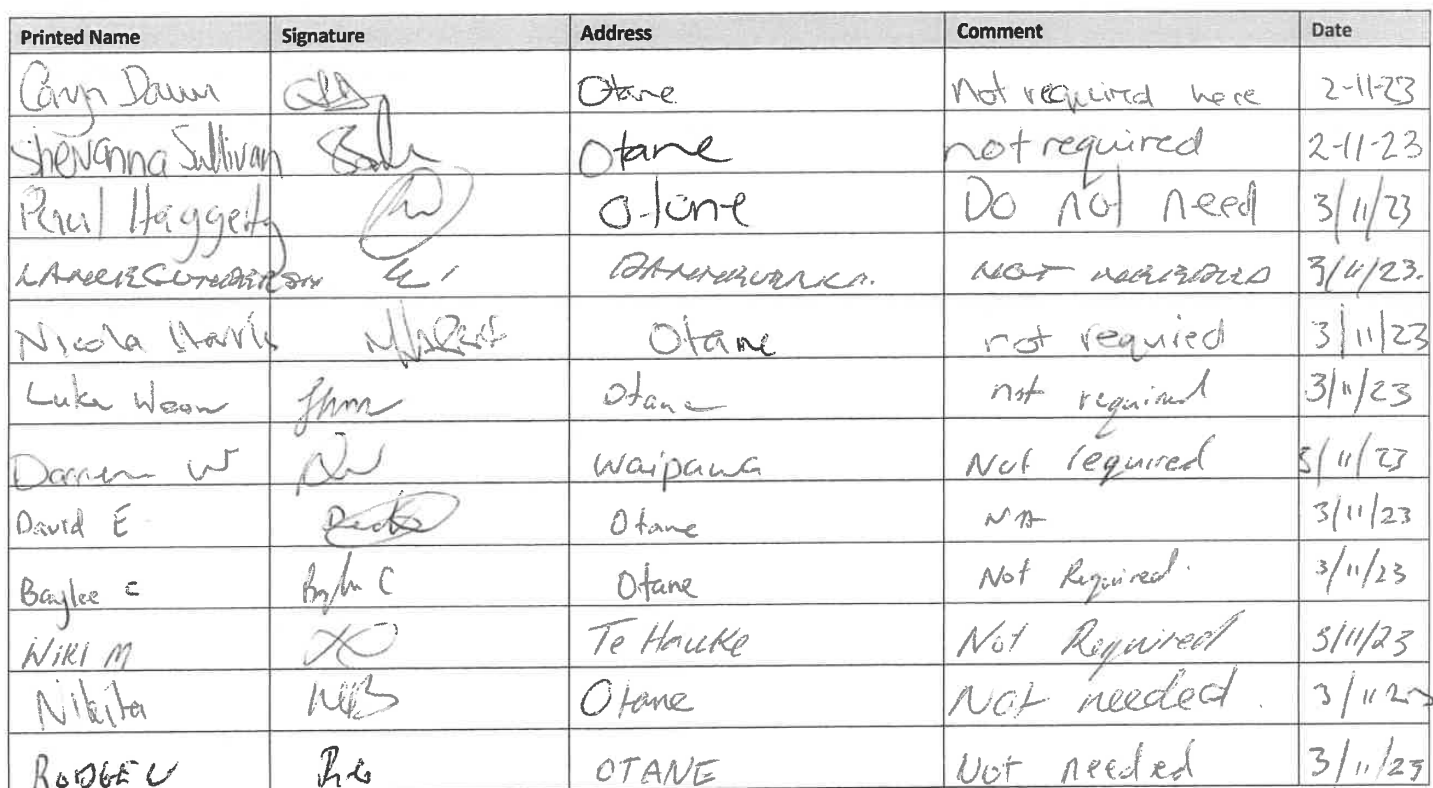 Printed Name Signature Address Comment Date
Caryn Otane Not required here 2-11-23
Shevanna Sullivan Otane not required 2-11-23
Paul Haggerty Otane Do not need 3/11/23
NOT NEEDED 3/11/23.
Nicola Harris Otane not required 3/11/23
Luke Otane not required 3/11/23
Darren W Waipawa Not required 3/11/23
David E Otane NA 3/11/23
Baylee C Otane Not Required. 3/11/23
Wiki M Te Hauke Not Required 3/11/23
Nikita Otane Not needed. 3/11/23
OTANE Not needed 3/11/23